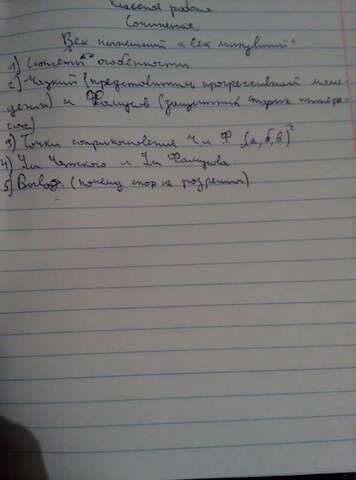 Классная работа
Сочинение.
"Век нынешний и век минувший"
1) Сюжетные особенности
2) Чацкий (представитель прогрессивной моло-
дёжи) и Фамусов (защитник старых интере-
сов)
3) Точки соприкосновения Ч и Ф (а, б, в)
4) Ум Чатского и Ум Фамусова.
5) Вывод. (почему спор не разрешим)